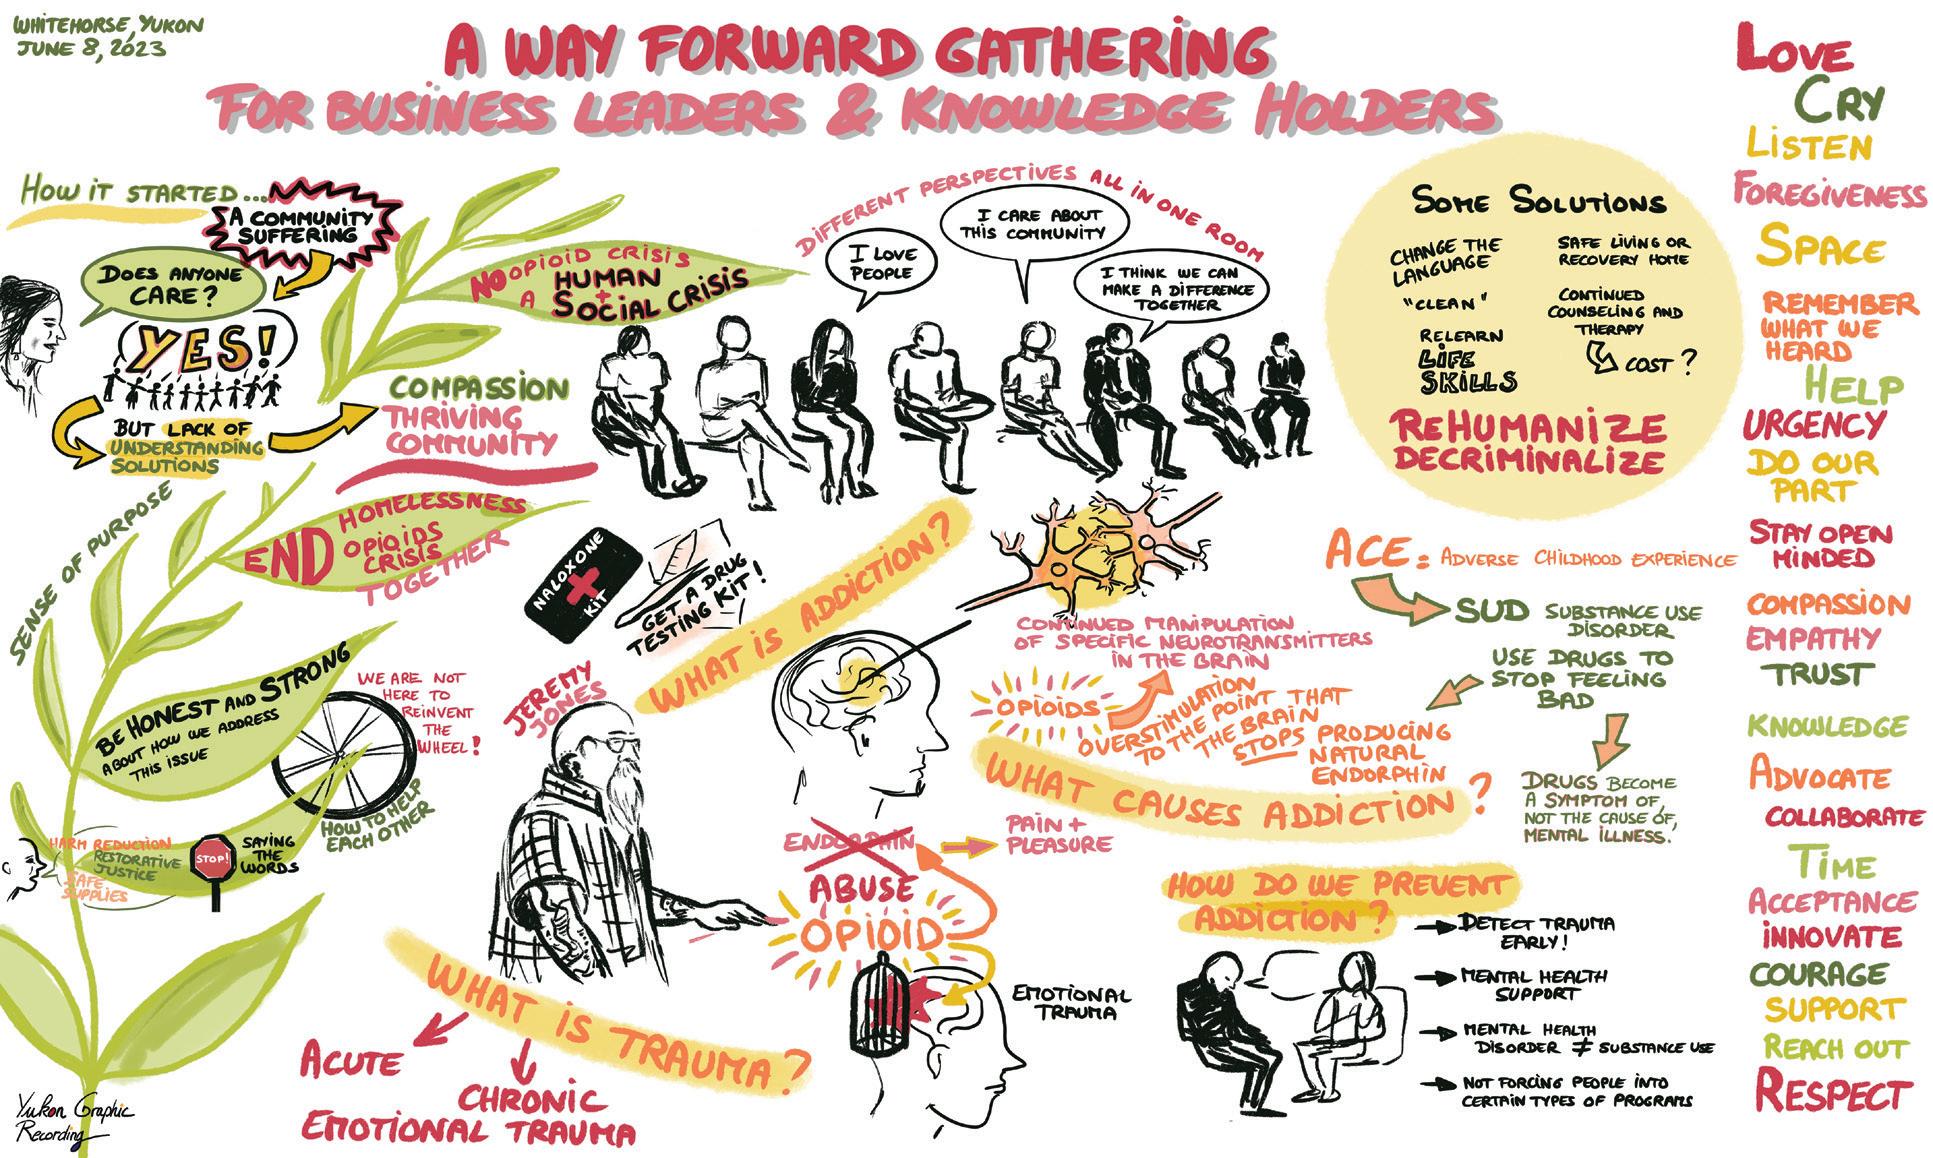 WHITEHORSE, YUKON
JUNE 8, 2023
A WAY FORWARD GATHERING
FOR BUSINESS LEADERS & KNOWLEDGE HOLDERS
HOW IT STARTED...
A COMMUNITY
SUFFERING
DOES ANYONE
CARE?
YES!
BUT LACK OF
UNDERSTANDING
SOLUTIONS
COMPASSION
THRIVING
COMMUNITY
NO OPIOID CRISIS
A HUMAN
+
SOCIAL CRISIS
END
HOMELESSNESS
OPIOIDS
CRISIS
TOGETHER
SENSE OF PURPOSE
BE HONEST AND STRONG
ABOUT HOW WE ADDRESS
THIS ISSUE
WE ARE NOT
HERE TO
REINVENT
THE
WHEEL!
HOW TO HELP
EACH OTHER
HARM REDUCTION
RESTORATIVE
JUSTICE
SAFE
SUPPLIES
STOP!
SAYING
THE
WORDS
Yukon Graphic
Recording
DIFFERENT PERSPECTIVES ALL IN ONE ROOM
I LOVE
PEOPLE
I CARE ABOUT
THIS COMMUNITY
I THINK WE CAN
MAKE A DIFFERENCE
TOGETHER
NALOXONE
KIT
GET A DRUG
TESTING KIT!
JEREMY
JONES
WHAT IS ADDICTION?
CONTINUED MANIPULATION
OF SPECIFIC NEUROTRANSMITTERS
IN THE BRAIN
OPIOIDS
OVERSTIMULATION
TO THE POINT THAT
THE BRAIN
STOPS PRODUCING
NATURAL
ENDORPHIN
WHAT CAUSES ADDICTION?
ENDORPHIN
PAIN +
PLEASURE
ABUSE
OPIOID
EMOTIONAL
TRAUMA
WHAT IS TRAUMA?
ACUTE
CHRONIC
EMOTIONAL TRAUMA
SOME SOLUTIONS
CHANGE THE
LANGUAGE
"CLEAN"
RELEARN
LIFE
SKILLS
SAFE LIVING OR
RECOVERY HOME
CONTINUED
COUNSELING AND
THERAPY
COST?
REHUMANIZE
DECRIMINALIZE
ACE = ADVERSE CHILDHOOD EXPERIENCE
SUD SUBSTANCE USE
DISORDER
USE DRUGS TO
STOP FEELING
BAD
DRUGS BECOME
A SYMPTOM OF,
NOT THE CAUSE OF,
MENTAL ILLNESS.
HOW DO WE PREVENT
ADDICTION?
DETECT TRAUMA
EARLY!
MENTAL HEALTH
SUPPORT
MENTAL HEALTH
DISORDER ≠ SUBSTANCE USE
NOT FORCING PEOPLE INTO
CERTAIN TYPES OF PROGRAMS
LOVE
CRY
LISTEN
FOREGIVENESS
SPACE
REMEMBER
WHAT WE
HEARD
HELP
URGENCY
DO OUR
PART
STAY OPEN
MINDED
COMPASSION
EMPATHY
TRUST
KNOWLEDGE
ADVOCATE
COLLABORATE
TIME
ACCEPTANCE
INNOVATE
COURAGE
SUPPORT
REACH OUT
RESPECT